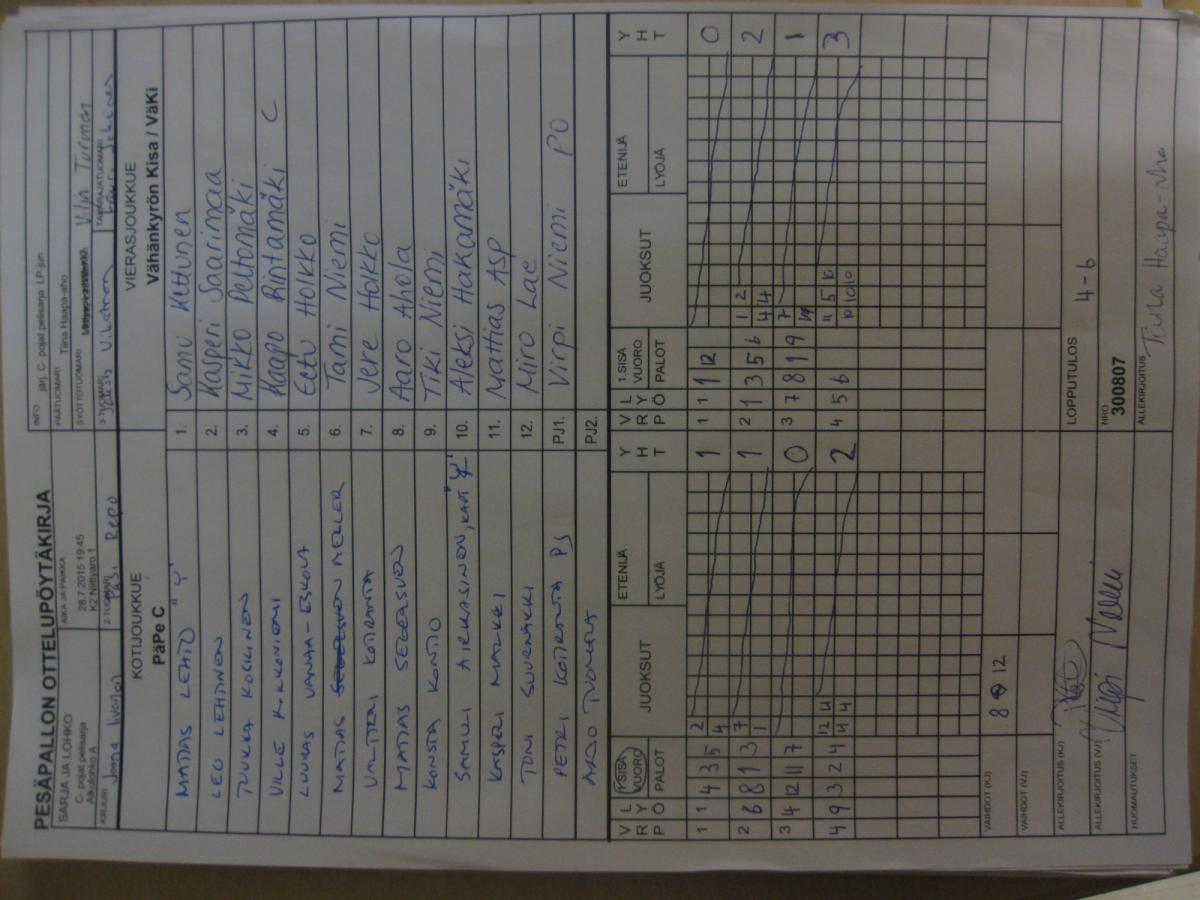 PESÄPALLON OTTELUPÖYTÄKIRJA
INFO järj. C- pojat pelisarja: LP-jun
SARJA JA LOHKO
C- pojat pelisarja
Alkulohko A
AIKA JA PAIKKA
28.7.2015 19:45
K2 Niittyaro 1
PÄÄTUOMARI Tiina Haapa-aho
SYÖTTÖTUOMARI Vilja Turunen
KIRJURI Jaana Iivonen
2-TUOMARI Pasi Repo
3-TUOMARI
TAKARAJATUOMARI
KOTIJOUKKUE
PäPe C
VIERASJOUKKUE
Vähänkyrön Kisa / VäKi
MATIAS LEHTO "Y"
1. Samu Kettunen
LEO LEHTINEN
2. Kasperi Saarimaa
TUUKKA KOKKINEN
3. Mikko Peltomäki
VILLE KOKKONIEMI
4. Kaapo Rintamäki C
LUUKAS VANHA-ESKOLA
5. Eetu Holkko
MATIAS MELLER
6. Tami Niemi
VALTTERI KOTIRANTA
7. Jere Holkko
MATIAS SEGERSVEN
8. Aaro Ahola
KONSTA KONTIO
9. Tiki Niemi
SAMULI AIRAKSINEN, KAPT "Y"
10. Aleksi Hakamäki
KASPERI MALKKI
11. Mattias Asp
TONI SUURNÄKKI
12. Miro Lac
PETRI KOTIRANTA PJ
PJ1. Virpi Niemi PO
ARTO TUOMELA
PJ2.
V R P L Y Ö 1.SISÄ VUORO PALOT JUOKSUT ETENIJÄ LYÖJÄ Y H T
V R P L Y Ö 1.SISÄ VUORO PALOT JUOKSUT ETENIJÄ LYÖJÄ Y H T
1 1 4 3 5 2 4 1
1 1 12 0
2 6 8 1 3 7 1 1
2 1 3 5 6 1 2 4 4 2
3 4 12 11 7 0
3 7 8 1 9 7 1
4 9 3 2 4 12 11 4 4 2
4 5 6 11 5 10 10 10 10 3
VAIHDOT (KJ) 8 12
VAIHDOT (VJ)
ALLEKIRJOITUS (KJ)
LOPPUTULOS 4-6
ALLEKIRJOITUS (VJ) Virpi Niemi
NRO
300807
HUOMAUTUKSET
ALLEKIRJOITUS Tiina Haapa-aho